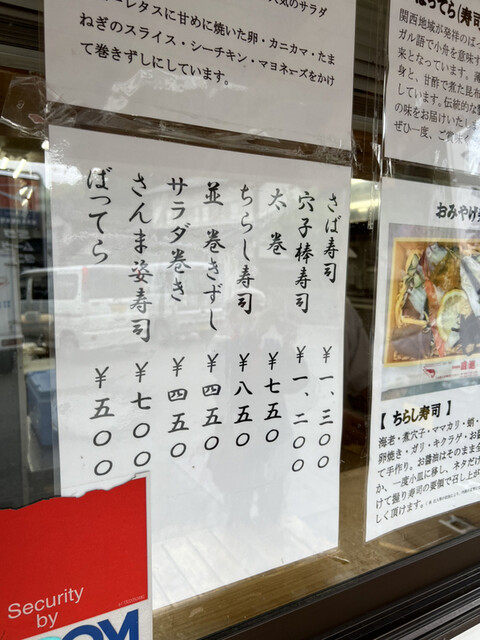 レタスに甘めに焼いた卵・カニカマ・たま
ねぎのスライス・シーチキン・マヨネーズをかけ
て巻きずしにしています。
さば寿司 ¥一、三〇〇
穴子棒寿司 ¥一、二〇〇
太巻 ¥七五〇
ちらし寿司 ¥八五〇
並 巻きずし ¥四五〇
サラダ巻き ¥四五〇
さんま姿寿司 ¥七〇〇
ばってら ¥五〇〇
ってら(寿司
関西地域が発祥のばっ
ガル語で小舟を意味す
来となっています。
身と、甘酢で煮た昆布
しています。伝統的な
の味をお届けいたし
ぜひ一度、ご賞味
おみやげ
【 ちらし寿司 】
海老・煮穴子・ママカリ・蛸・
卵焼き・ガリ・キクラゲ・お
て手作り。お醤油はそのまま
か、一度小皿に移し、ネタだけ
けて握り寿司の要領で召し上が
しく頂けます。
Security
by